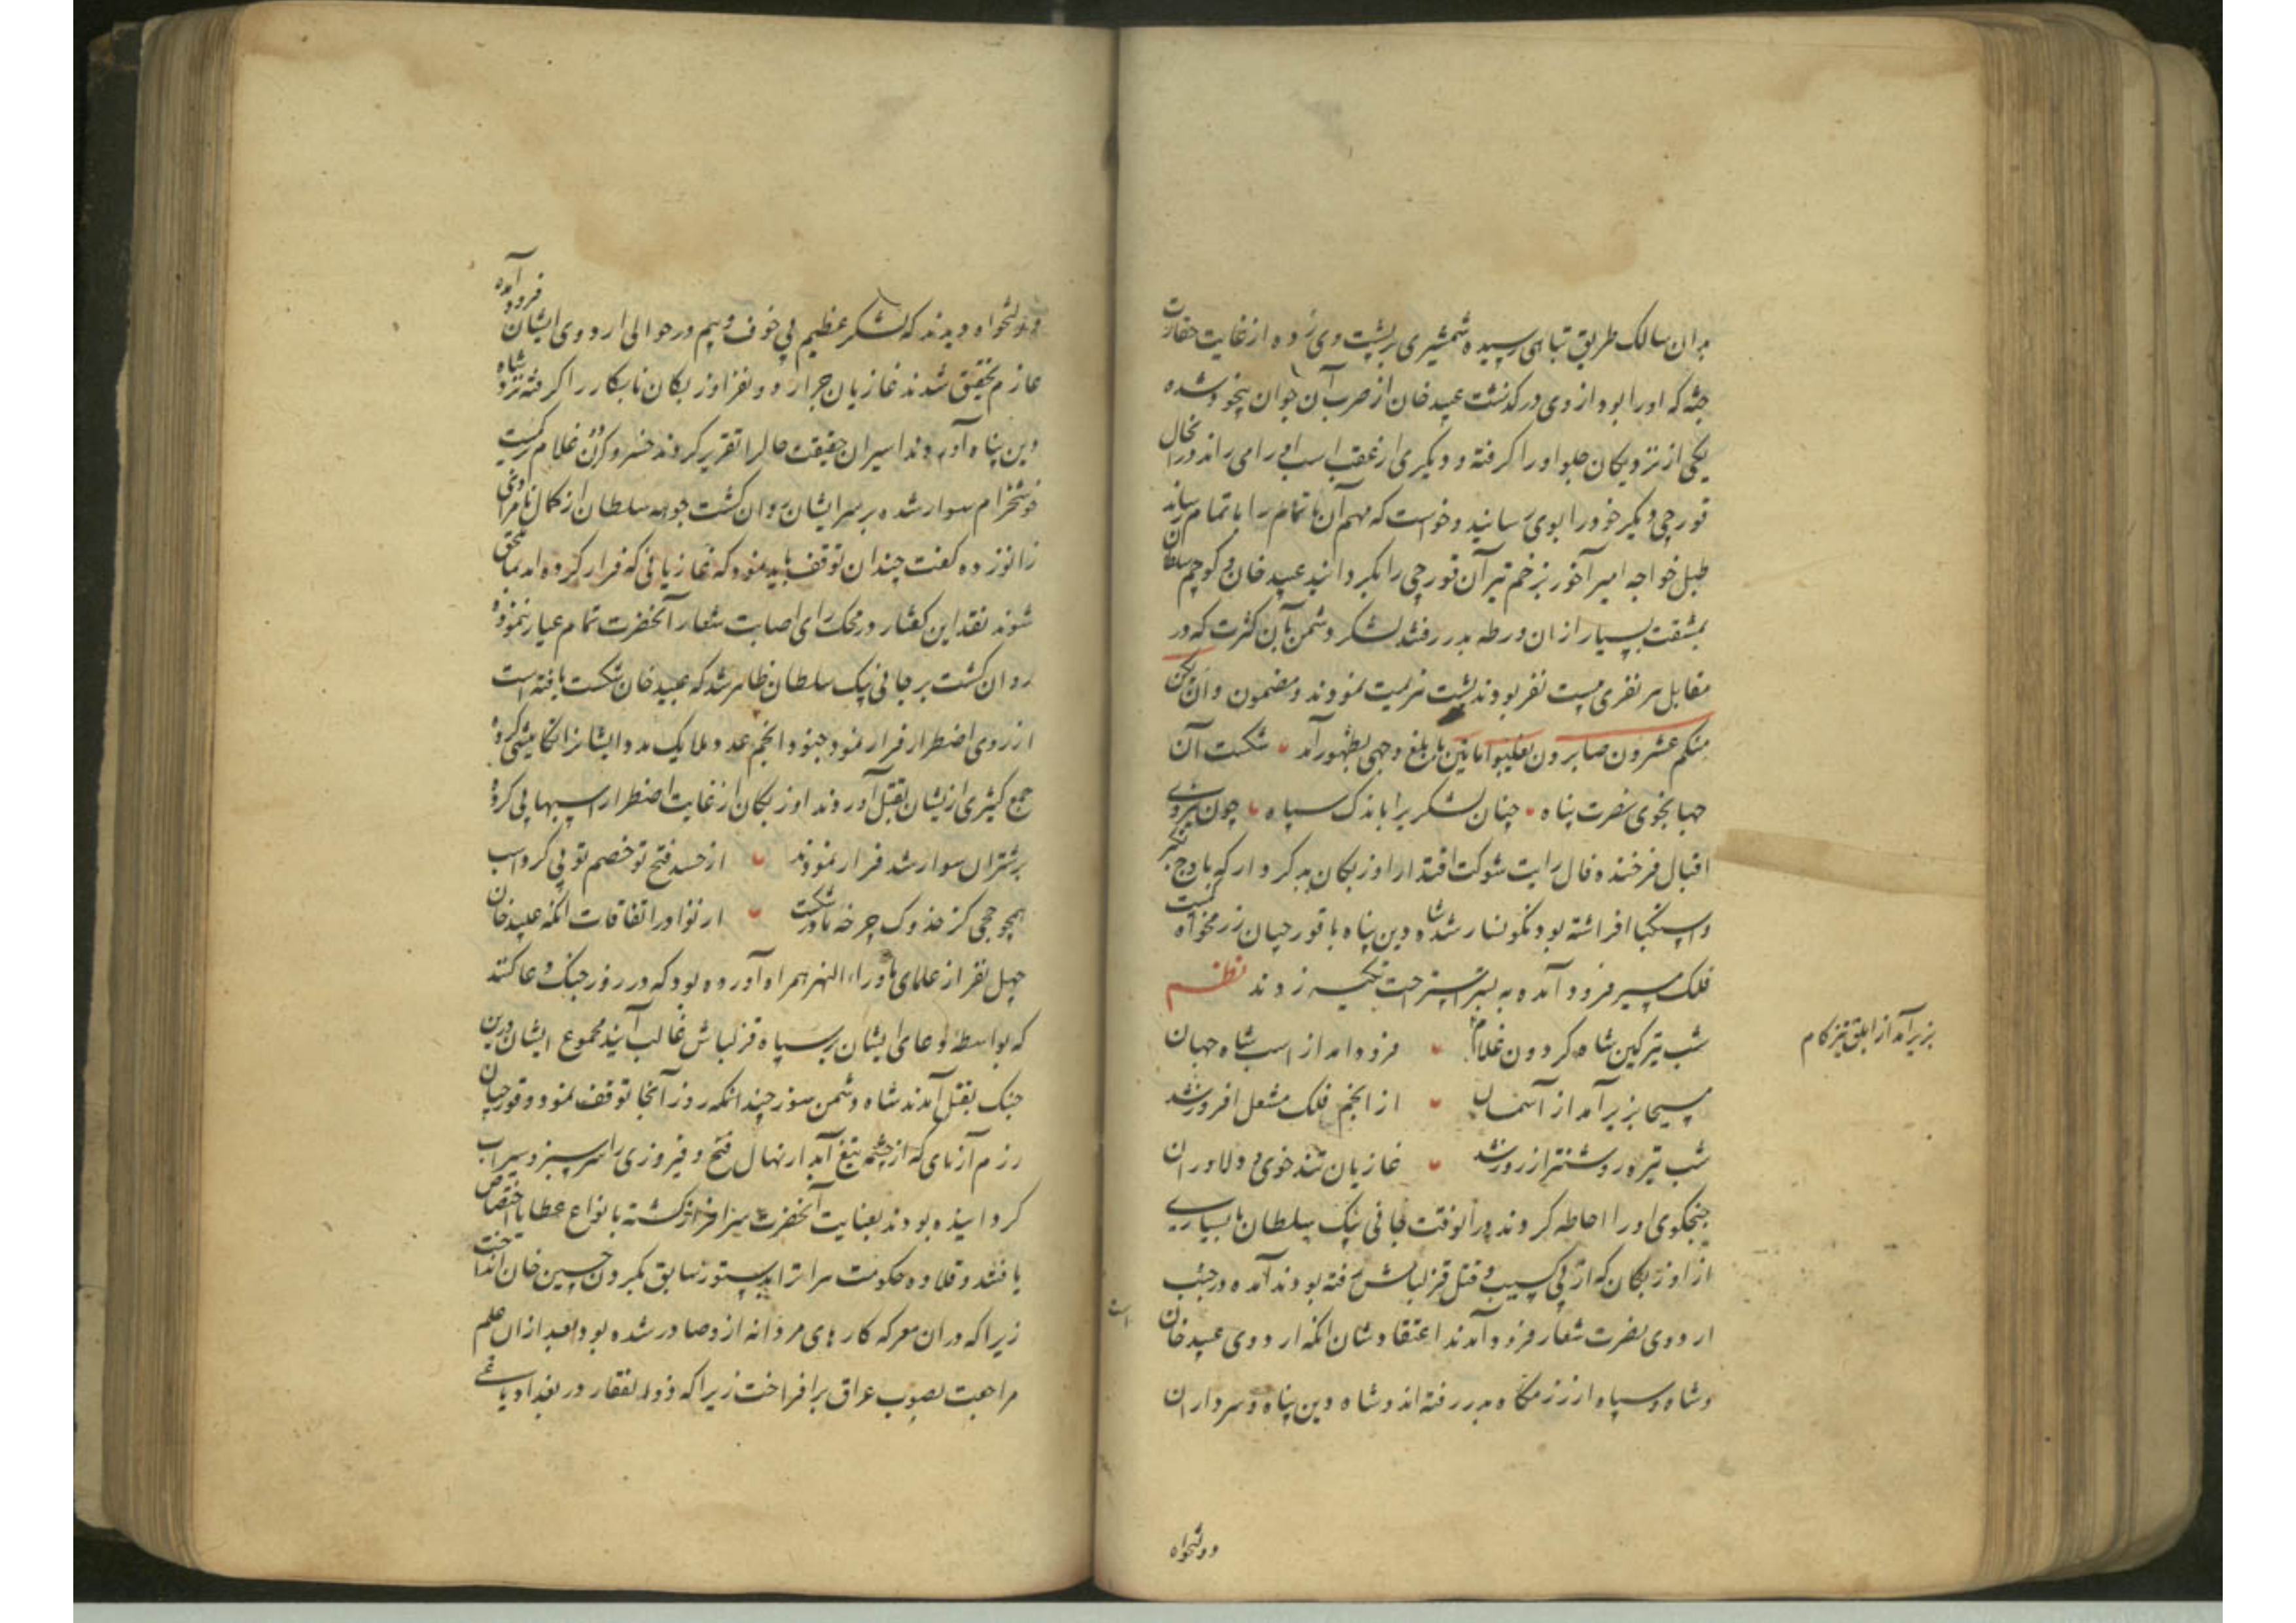 بدان سالک طریق تباهی رسیده شمشیری بر پشت وی زده از غایت حقارت
جثه که او را بود از وی درگذشت عبید خان از ضرب آن جوان بیخود شده
یکی از نزدیکان جلو او را گرفته و دیگری از عقب اسب او را می راند در آنحال
قورچی دیگر خود را بوی رسانید و خواست که مهم آن ناتمام را باتمام رساند
طبل خواجه امیر آخور بزخم تیر آن قورچی را بگردانید عبید خان و کوچم سلطان
بمشقت بسیار از ان ورطه بدر رفتند لشکر دشمن بآن کثرت که در
مقابل هر نفری بیست نفر بودند پشت بهزیمت نمودند و مضمون وان یکن
منکم عشرون صابرون یغلبوا ماتین بابلغ وجهی بظهور آمد شکست آن
جهانجوی نصرت پناه چنان لشکر یرا باندک سپاه چون بنیروی
اقبال فرخنده فال رایت شوکت اقتدار اوزبکان بد کردار که باوج تکبر
و استکبار افراشته بود نگونسار شد شاه دین پناه با قورچیان رزمخواه
فلک مسیر فرود آمده به بستر استراحت تکیه زدند نظم
شب تیر کین شاه گردون غلام فرود امد از اسب شاه جهان
بزیر آمد از ابلق تیز کام
مسیحا بزیر آمد از آسمان از انجم فلک مشعل افروز شد
شب تیره روشنتر از روز شد غازیان تند خوی و دلاوران
جنگجوی او را احاطه کردند در انوقت جانی بیک سلطان با بسیاری
از اوزبکان که از پی کسیب و قتل قزلباش رفته بودند آمده در جنب
اردوی نصرت شعار فرود آمدند اعتقادشان انکه اردوی عبید خان
است
و شاه و سپاه از رزمگاه بدر رفته اند و شاه دین پناه و سرداران
دولتخواه
دولتخواه دیدند که لشکر عظیم بی خوف و بیم در حوالی اردوی ایشان فرود آمده
عازم تحقیق شدند غازیان جرار دو نفر اوزبکان نابکار را گرفته نزد شاه
دین پناه آوردند اسیران حقیقت حال را تقریر کردند خسرو گردون غلام برکمیت
خوشخرام سوار شده بر سر ایشان روان گشت جوهه سلطان از کمال نامرادی
زانو زده گفت چندان توقف باید نمود که غازیانی که فرار کرده اند بما ملحق
شوند نقد این گفتار در محک رای اصابت شعار آنحضرت تمام عیار ننموده
روان گشت بر جانی بیک سلطان ظاهر شد که عبید خان شکست یافته است
از روی اضطرار فرار نمود جنود انجم عدد ملایک مدد ایشانرا تکامیشی کرده
جمع کثیری از یشان بقتل آوردند اوزبکان از غایت اضطرار اسبها پی کرده
بر شتران سوار شد فرار نمودند از حسد فتح تو خصم تو پی کرد اسب
همچو جحی کز خدوک چرخه مادر شکست از نوادر اتفاقات انکه عبید خان
چهل نفر از علمای ماوراء النهر همراه آورده بود که در روز جنگ دعا کنند
که بواسطه دعای ایشان بر سپاه قزلباش غالب آیند مجموع ایشان درین
جنک بقتل آمدند شاه دشمن سوز چند انکه روز آنجا توقف نمود و قورچیان
رزم آزمای که از چشمه تیغ آبدار نهال فتح و فیروزی را سرسبز و سیراب
کردانیده بودند بعنایت آنحضرت سرافراز گشته بانواع عطایا اختصاص
یافتند و قلاده حکومت هراترا بدستور سابق بگردن حسین خان انداخت
زیرا که در ان معرکه کارهای مردانه از و صادر شده بود و بعد از ان علم
مراجعت بصوب عراق بر افراخت زیرا که ذوالفقار در بغداد یاغی